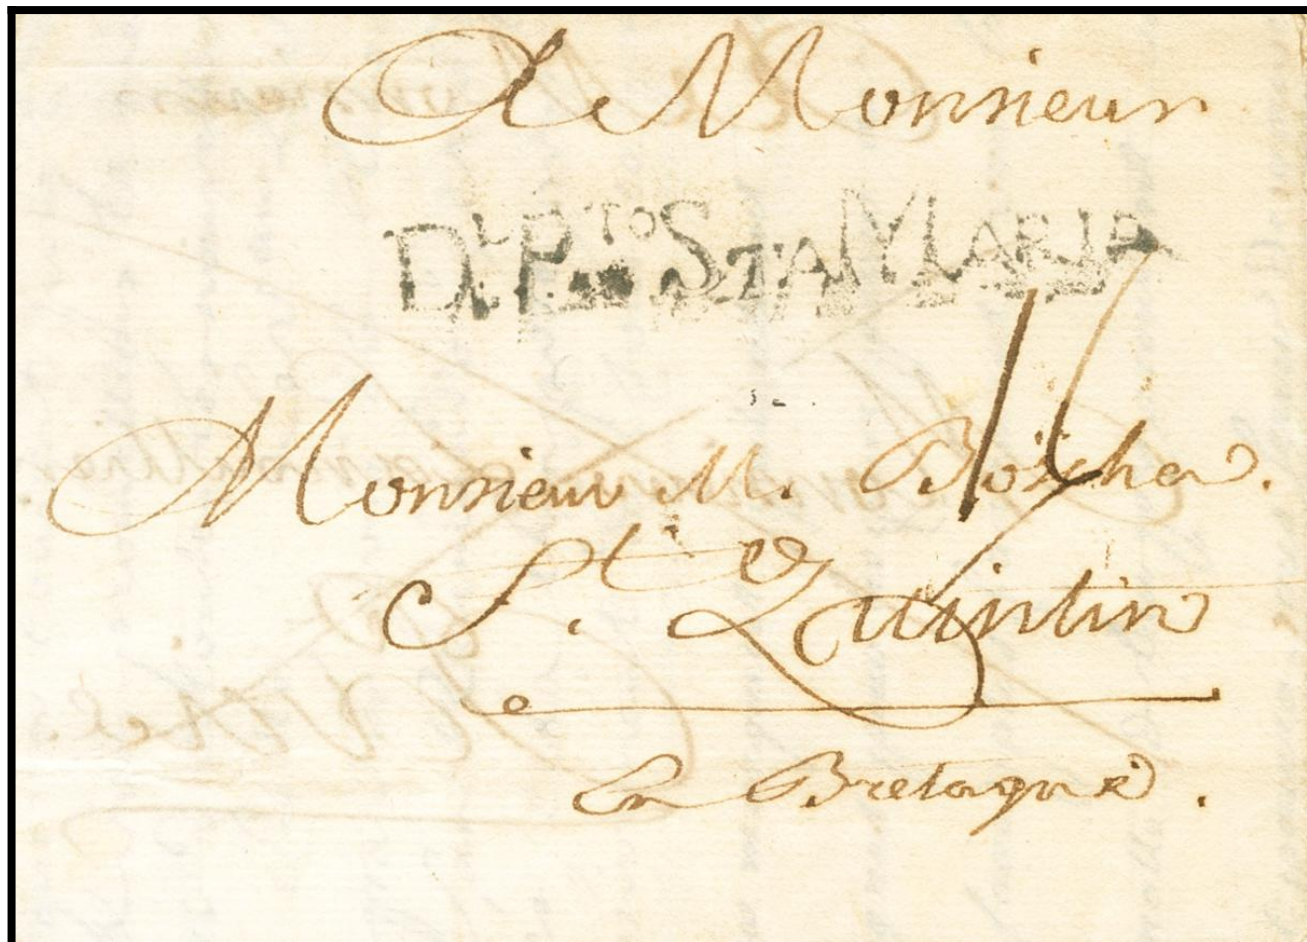 A Monsieur
DL PTO STA MARIA
Monsieur M. Boscher
16
St Quintin
en Bretagne.